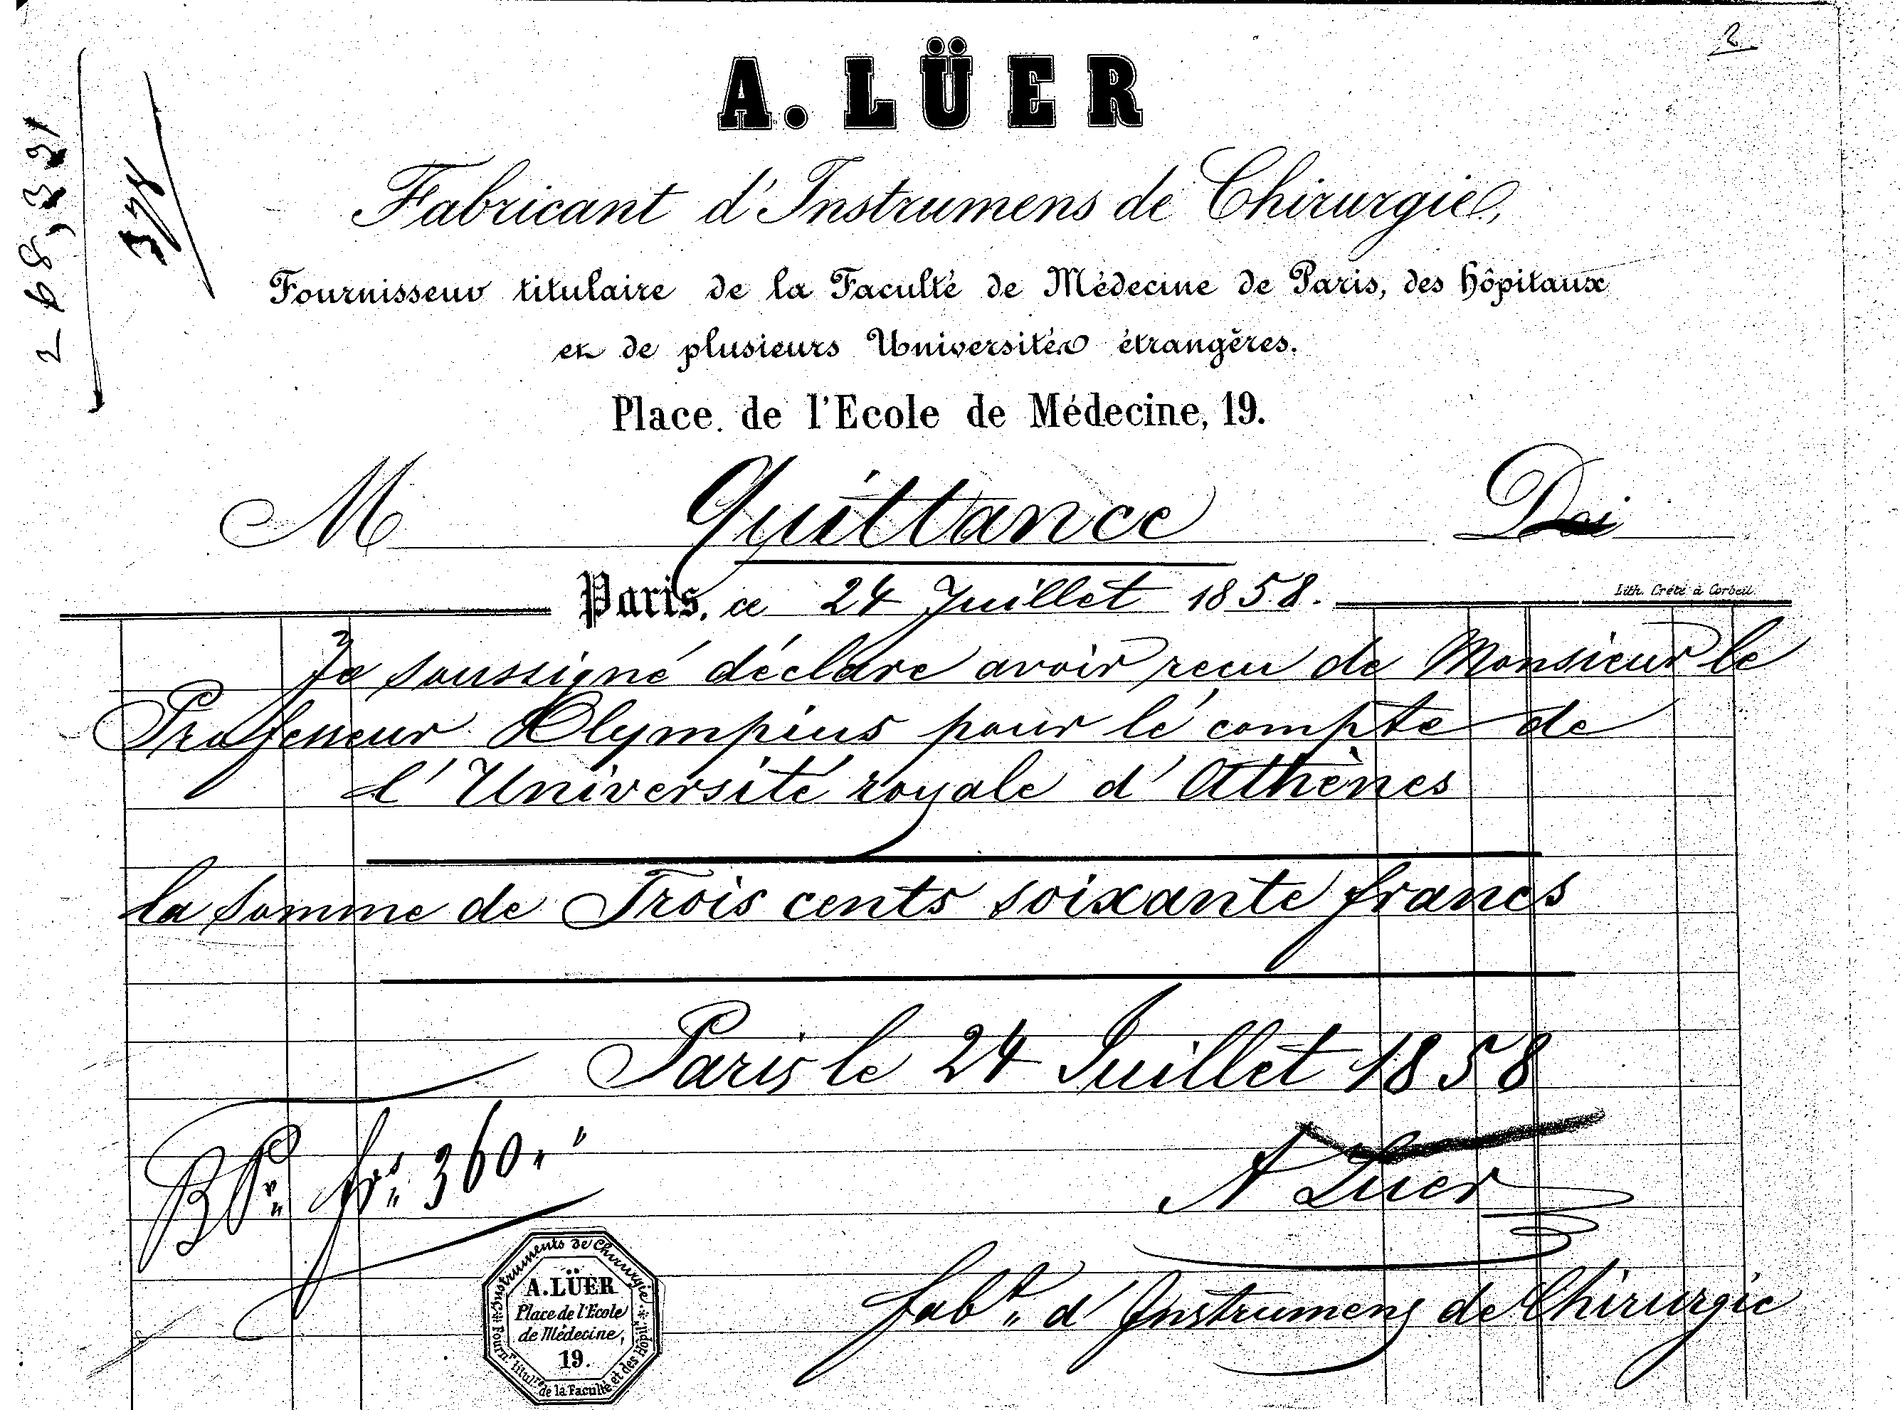 2
268,321
378
A. LÜER
Fabricant d'Instrumens de Chirurgie,
Fournisseur titulaire de la Faculté de Médecine de Paris, des hôpitaux
et de plusieurs Universités étrangères.
Place de l'Ecole de Médecine, 19.
M Quittance Doi
Paris, ce 24 Juillet 1858.
Lith. Crété à Corbeil
Je soussigné déclare avoir reçu de Monsieur le
Professeur Olympius pour le compte de
l'Université royale d'Athènes
la somme de Trois cents soixante francs
Paris le 24 Juillet 1858
BPr frs 360."
A Lüer
fabt d'Instrumens de Chirurgie
Instruments de Chirurgie
A. LÜER
Place de l'Ecole
de Médecine,
19.
Fournr titulre de la Faculté et des Hôpitx